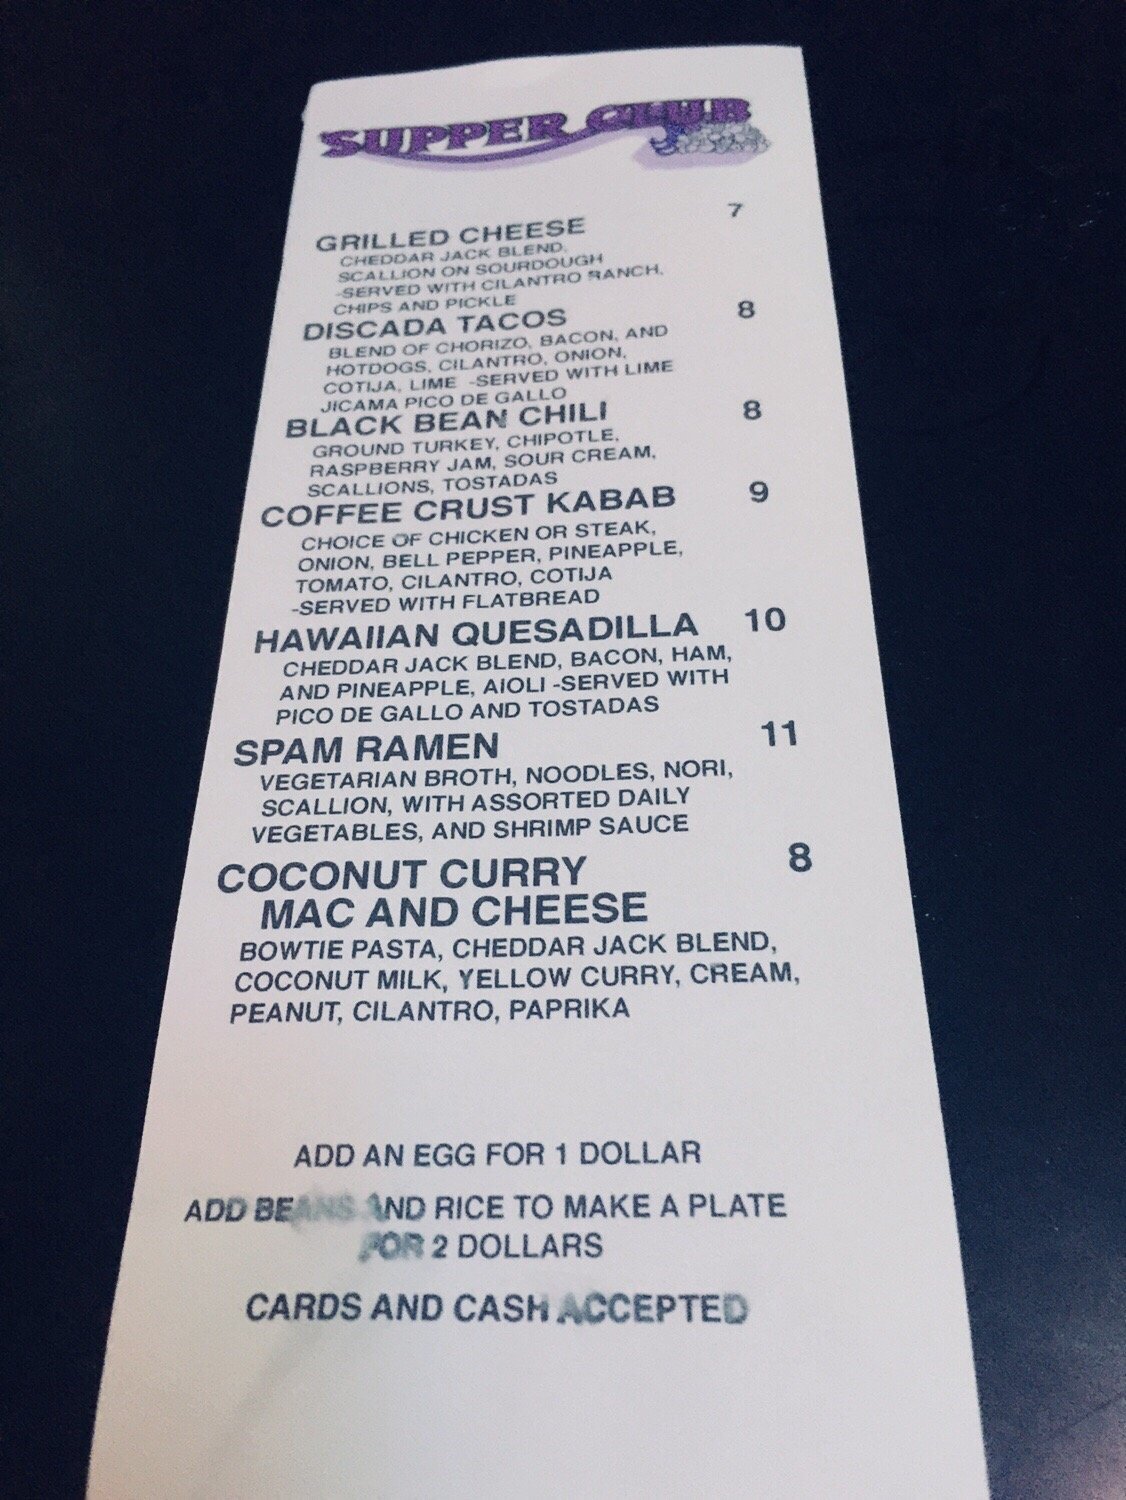 SUPPER CLUB
GRILLED CHEESE 7
CHEDDAR JACK BLEND,
SCALLION ON SOURDOUGH
-SERVED WITH CILANTRO RANCH,
CHIPS AND PICKLE
DISCADA TACOS 8
BLEND OF CHORIZO, BACON, AND
HOTDOGS, CILANTRO, ONION,
COTIJA, LIME -SERVED WITH LIME
JICAMA PICO DE GALLO
BLACK BEAN CHILI 8
GROUND TURKEY, CHIPOTLE,
RASPBERRY JAM, SOUR CREAM,
SCALLIONS, TOSTADAS
COFFEE CRUST KABAB 9
CHOICE OF CHICKEN OR STEAK,
ONION, BELL PEPPER, PINEAPPLE,
TOMATO, CILANTRO, COTIJA
-SERVED WITH FLATBREAD
HAWAIIAN QUESADILLA 10
CHEDDAR JACK BLEND, BACON, HAM,
AND PINEAPPLE, AIOLI -SERVED WITH
PICO DE GALLO AND TOSTADAS
SPAM RAMEN 11
VEGETARIAN BROTH, NOODLES, NORI,
SCALLION, WITH ASSORTED DAILY
VEGETABLES, AND SHRIMP SAUCE
COCONUT CURRY 8
MAC AND CHEESE
BOWTIE PASTA, CHEDDAR JACK BLEND,
COCONUT MILK, YELLOW CURRY, CREAM,
PEANUT, CILANTRO, PAPRIKA
ADD AN EGG FOR 1 DOLLAR
ADD BEANS AND RICE TO MAKE A PLATE
FOR 2 DOLLARS
CARDS AND CASH ACCEPTED